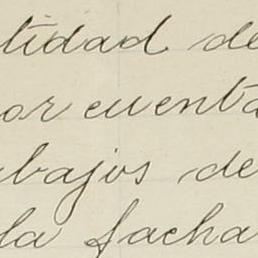 lidad de
or cuenta
abajos de
la facha